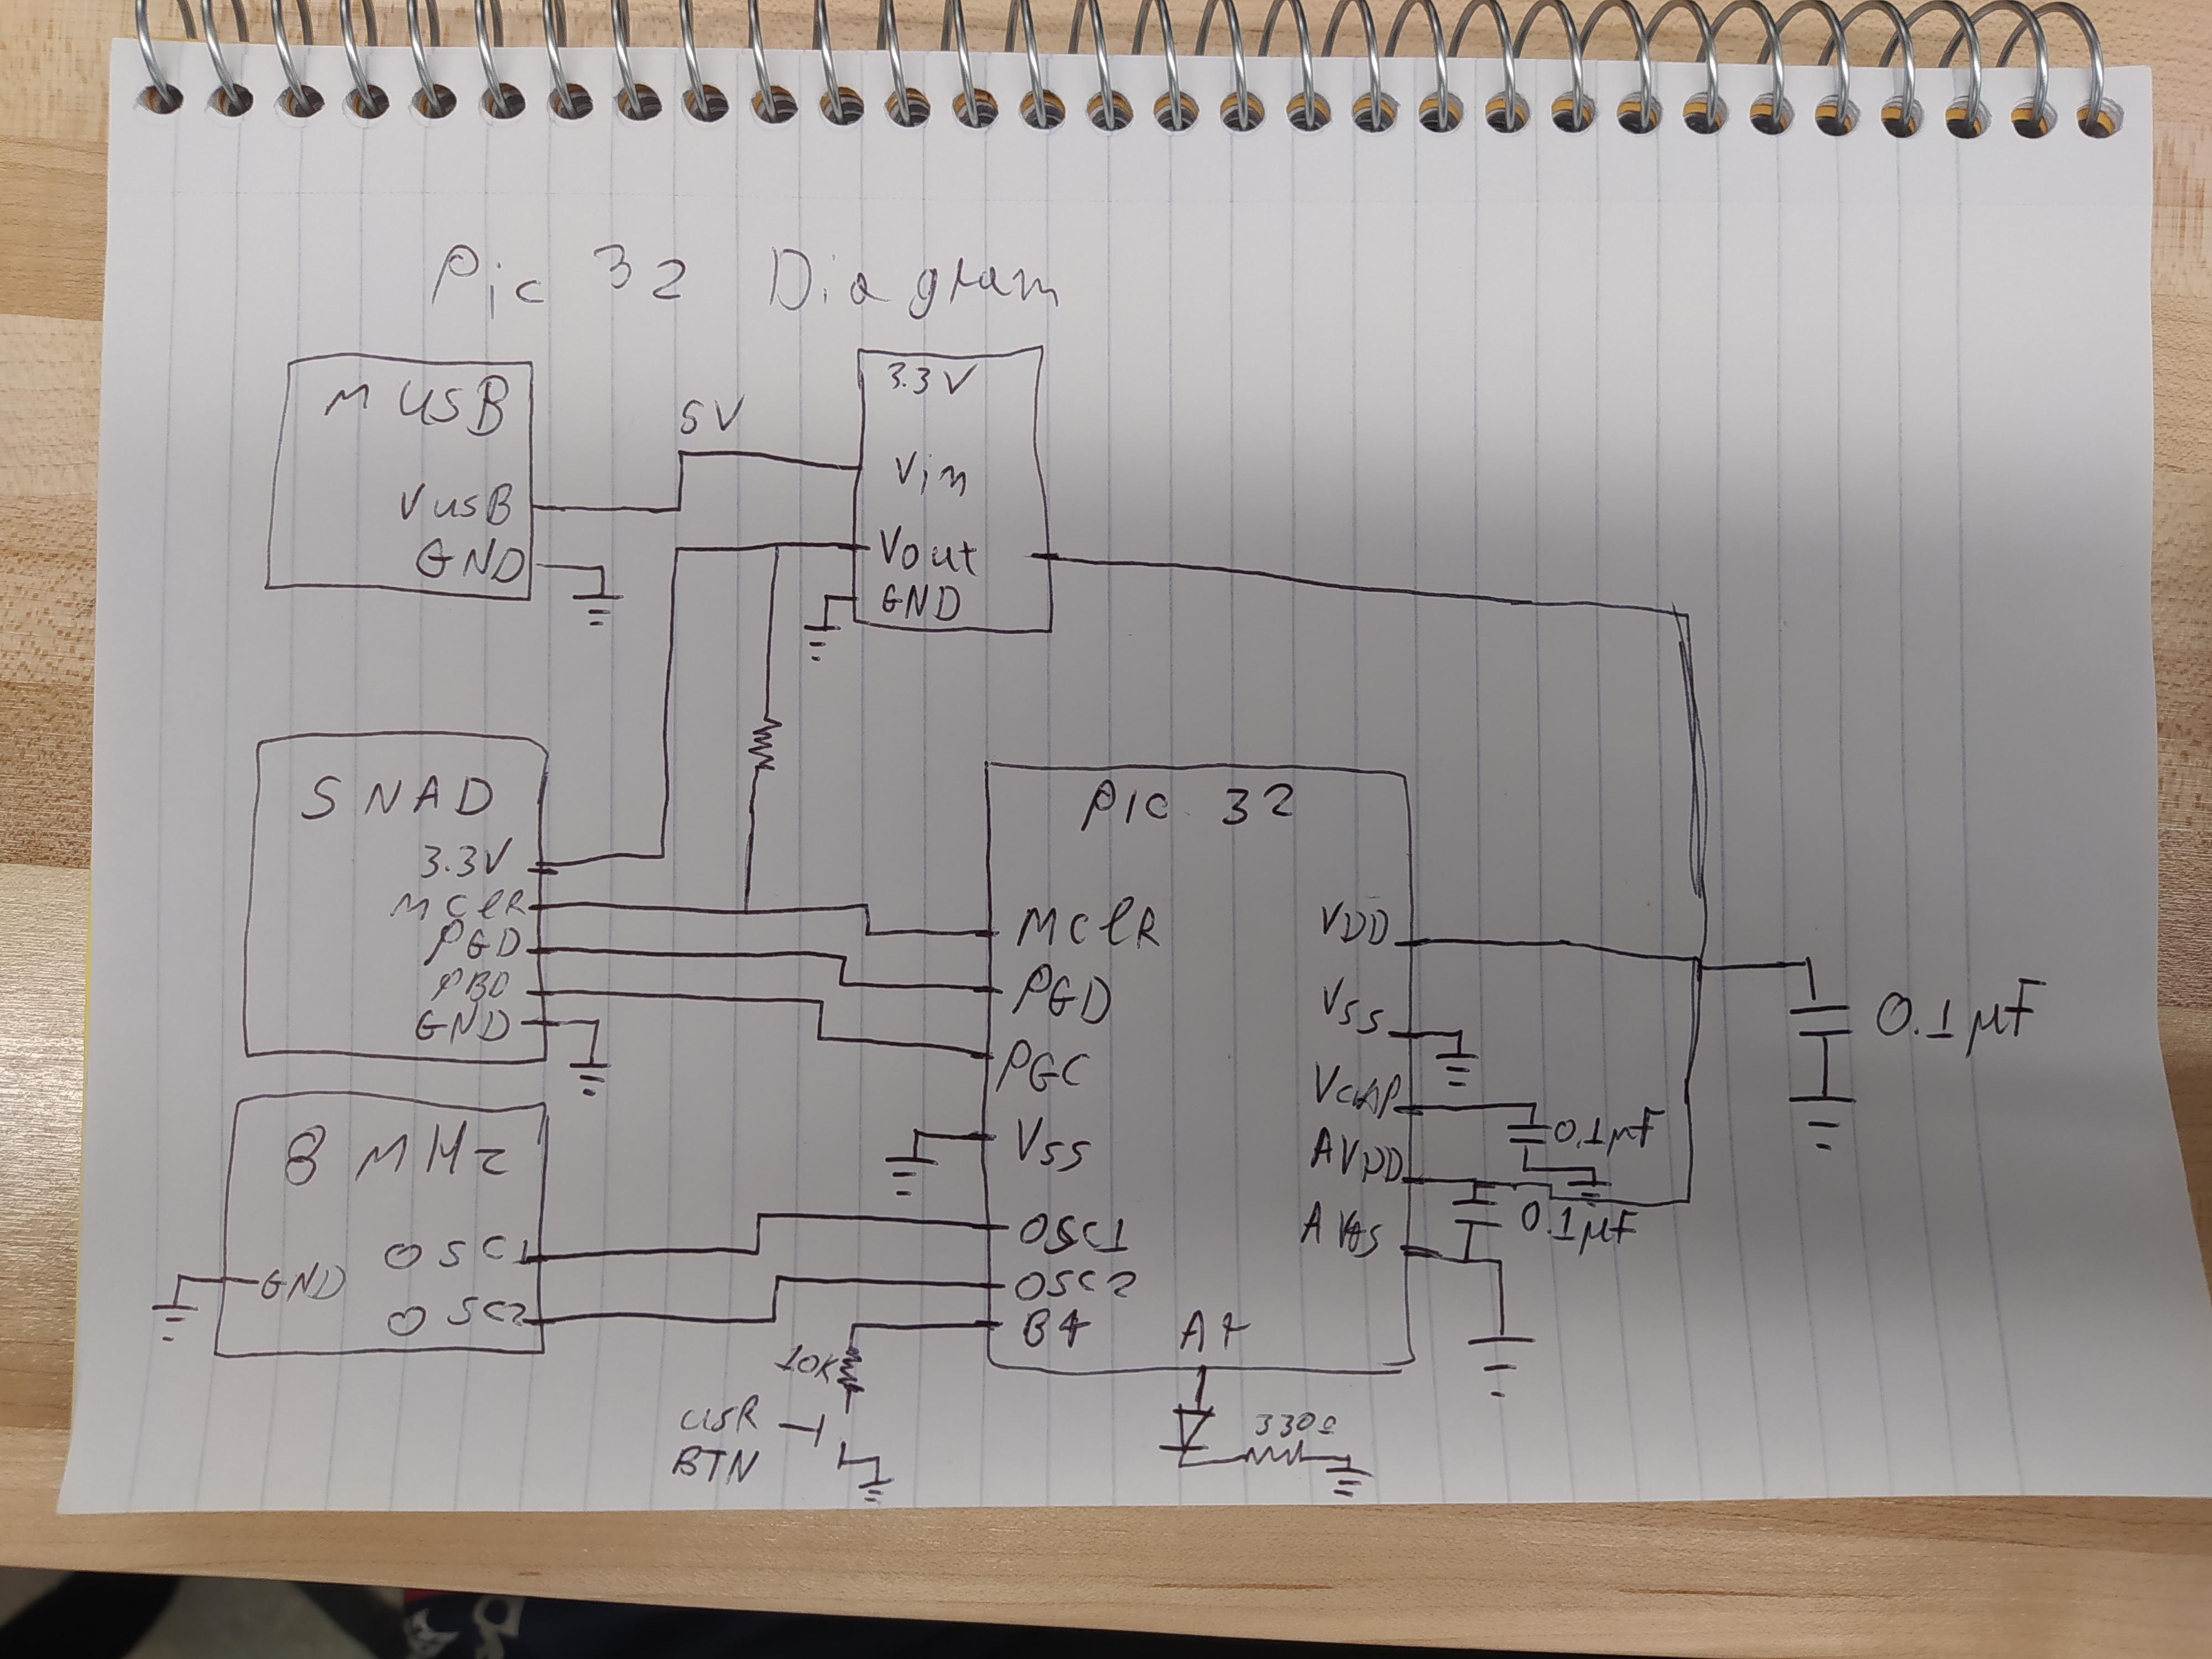 Pic 32 Diagram
M USB
VUSB
GND
5V
3.3V
Vin
Vout
GND
SNAD
3.3V
MClR
PGD
PBD
GND
8 MHz
OSC1
GND
OSC2
PIC 32
MClR
PGD
PGC
VSS
OSC1
OSC2
B4
A4
VDD
VSS
VCAP
AVDD
0.1µF
0.1µF
0.1µF
10K
USR
BTN
330Ω